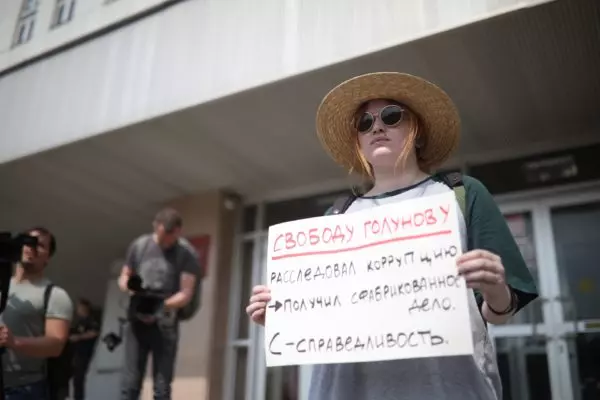 СВОБОДУ ГОЛУНОВУ
РАССЛЕДОВАЛ КОРРУПЦИЮ
→ПОЛУЧИЛ СФАБРИКОВАННОЕ
ДЕЛО.
С-СПРАВЕДЛИВОСТЬ.